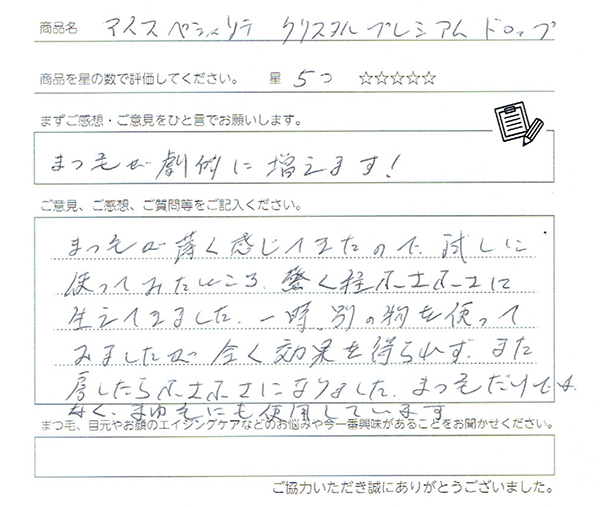 商品名 アイススペシャリテ クリスタルプレミアム ドロップ
商品を星の数で評価してください。 星 5 つ ☆☆☆☆☆
まずご感想・ご意見をひと言でお願いします。
まつ毛が劇的に増えます!
ご意見、ご感想、ご質問等をご記入ください。
まつ毛が薄く感じてきたので、試しに
使ってみたところ、驚く程ふさふさに
生えてきました。一時、別の物を使って
みましたが全く効果を得られず、また
戻したらふさふさになりました。まつ毛だけでは
なく、まゆ毛にも使用しています
まつ毛、目元やお顔のエイジングケアなどのお悩みや今一番興味があることをお聞かせください。
ご協力いただき誠にありがとうございました。